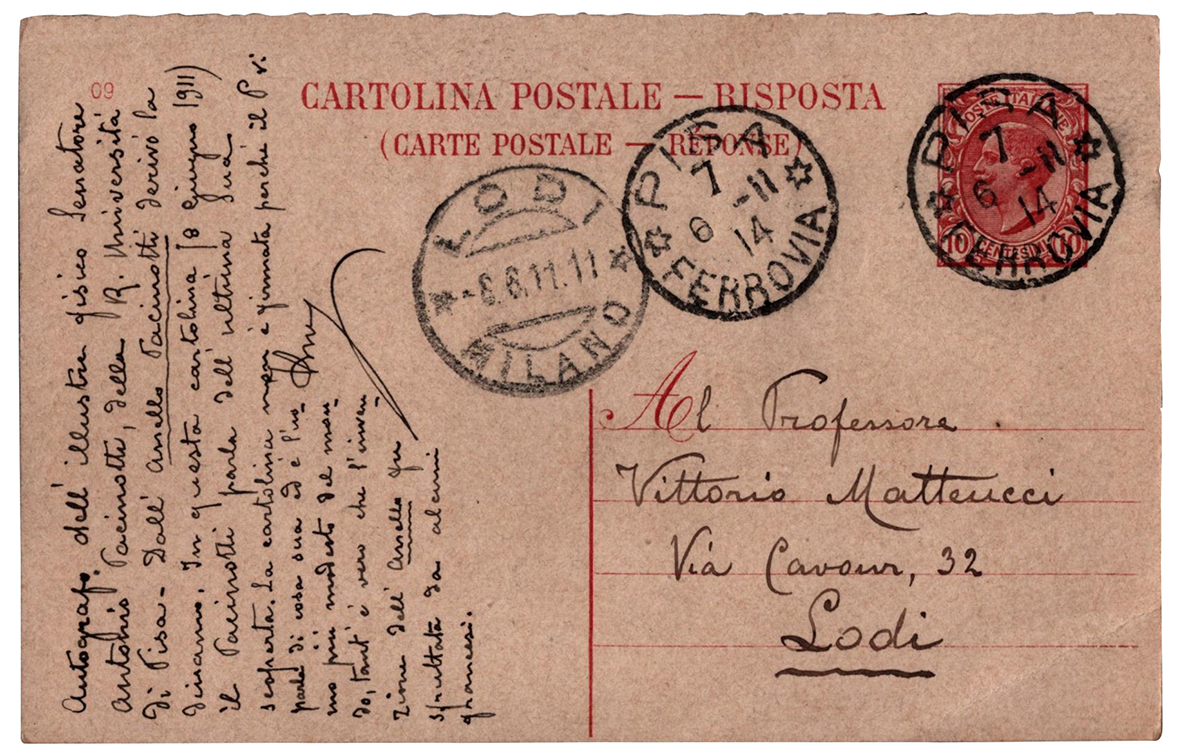 09
CARTOLINA POSTALE — RISPOSTA
(CARTE POSTALE — RÉPONSE)
POSTE ITALIANE
10 CENTESIMI 10
PISA
7
6 -11
14
FERROVIA
PISA
7
6 -11
14
FERROVIA
LODI
-8.6.11.11
MILANO
Al Professore
Vittorio Matteucci
Via Cavour, 32
Lodi
Autografo dell'illustre fisico Senatore
Antonio Pacinotti, della R. Università
di Pisa - Dall'Anello Pacinotti derivò la
dinamo. In questa cartolina (8 giugno 1911)
il Pacinotti parla dell'ultima Sua
scoperta. La cartolina non è firmata perché il P. vi
parla di cosa sua ed è l'uo-
mo più modesto del mon-
do, tant'è vero che l'inven-
zione dell'Anello fu
sfruttata da alcuni
francesi.